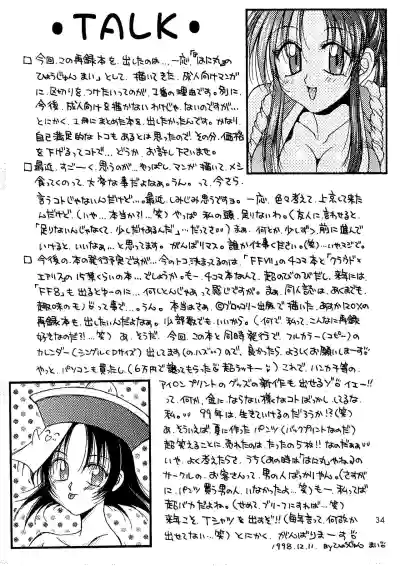 •TALK•
□ 今回、この再録本を出したのは…一応、「はにわ」の
ひょうじゅん まい」として、描いてきた、成人向けマンガ
に、区切りをつけたいってのが、1番の理由です。別に、
今後、成人向けを描かないわけじゃ、ないのですが…
とにかく、1冊にまとめた本を、出したかったんです。かなり
自己満足的なトコもあるとは思ったので、その分、価格
を下げるってコトで… どうか、お許し下さいませ。
□ 最近、すごーく、思うのが… やっぱし、マンガ描いて、メシ
食ってくのって、大変な事だよなぁ。うん。って、今さら、
言うコトじゃないんだけど…。最近、しみじみ思うですョ。一応、色々考えて、上京して来た
んだけど(いや…本当か?!…笑)やっぱ 私の頭、足りないわ。(友人に言わせると、
「足りないんじゃなくて、少しだけあるんだ」…だって…笑) まぁ、何とか、少しずつ、前に進んで
いけると、いいなぁ… と思ってます。がんばりマス。誰か仕事ください。(笑)…いやマジで。
□ 今後の本の発行予定ですが… 今のトコ決まってるのは、「FFVII」の4コマ本と「クラウド×
エアリス」の15禁くらいの本…でしょうか。もー、4コマ本なんて、超のびのびだし、来年には、
「FF8」も出るとゆーのに…何じゃとんじゃって感じですが。まぁ、同人誌は、あくまでも、
趣味のモノなって事で…。うん。本当はさぁ
再録本も、出したいんだよなぁ。少部数でもいいから。(何で、私って、こんなに再録
好きなのだ?!…笑) あ、そうだ、今回、この本と同時発行で、フルカラー(コピー)の
カレンダー(シングルCDサイズ)出してます(のハズ…)ので、良かったら、よろしくお願いしまーす
やっと、パソコンも買ったし(6万円で譲ってもらったな 超ラッキー) これで、ハンカチ等の、
アイロンプリントのグッズの新作も出せるゾ イエー!!
って、何か、金に、ならない様なコトばっかしてるな、
私。 99年は、生きていけるのだろうか!?(笑)
あ、そういえば、夏に作ったパンツ(バックプリントなのだ)
超笑えることに、売れたのは、たったの5枚!!なのだぁ
いや、よく考えたら、うち(あの時は「はにわ」)の
サークルの、お客さんって、男の人ばっかりやん。(さすが
に、パンツ買う男の人、いなかったよ…笑) もー、私っては
超バカだよねぇ。(せめて、ブリーフにすれば…笑)
来年こそ、Tシャツを出すぞ!! (毎年言って、何故か
出せてない…笑) とにかく、がんばりまーす
1998.12.11.
34